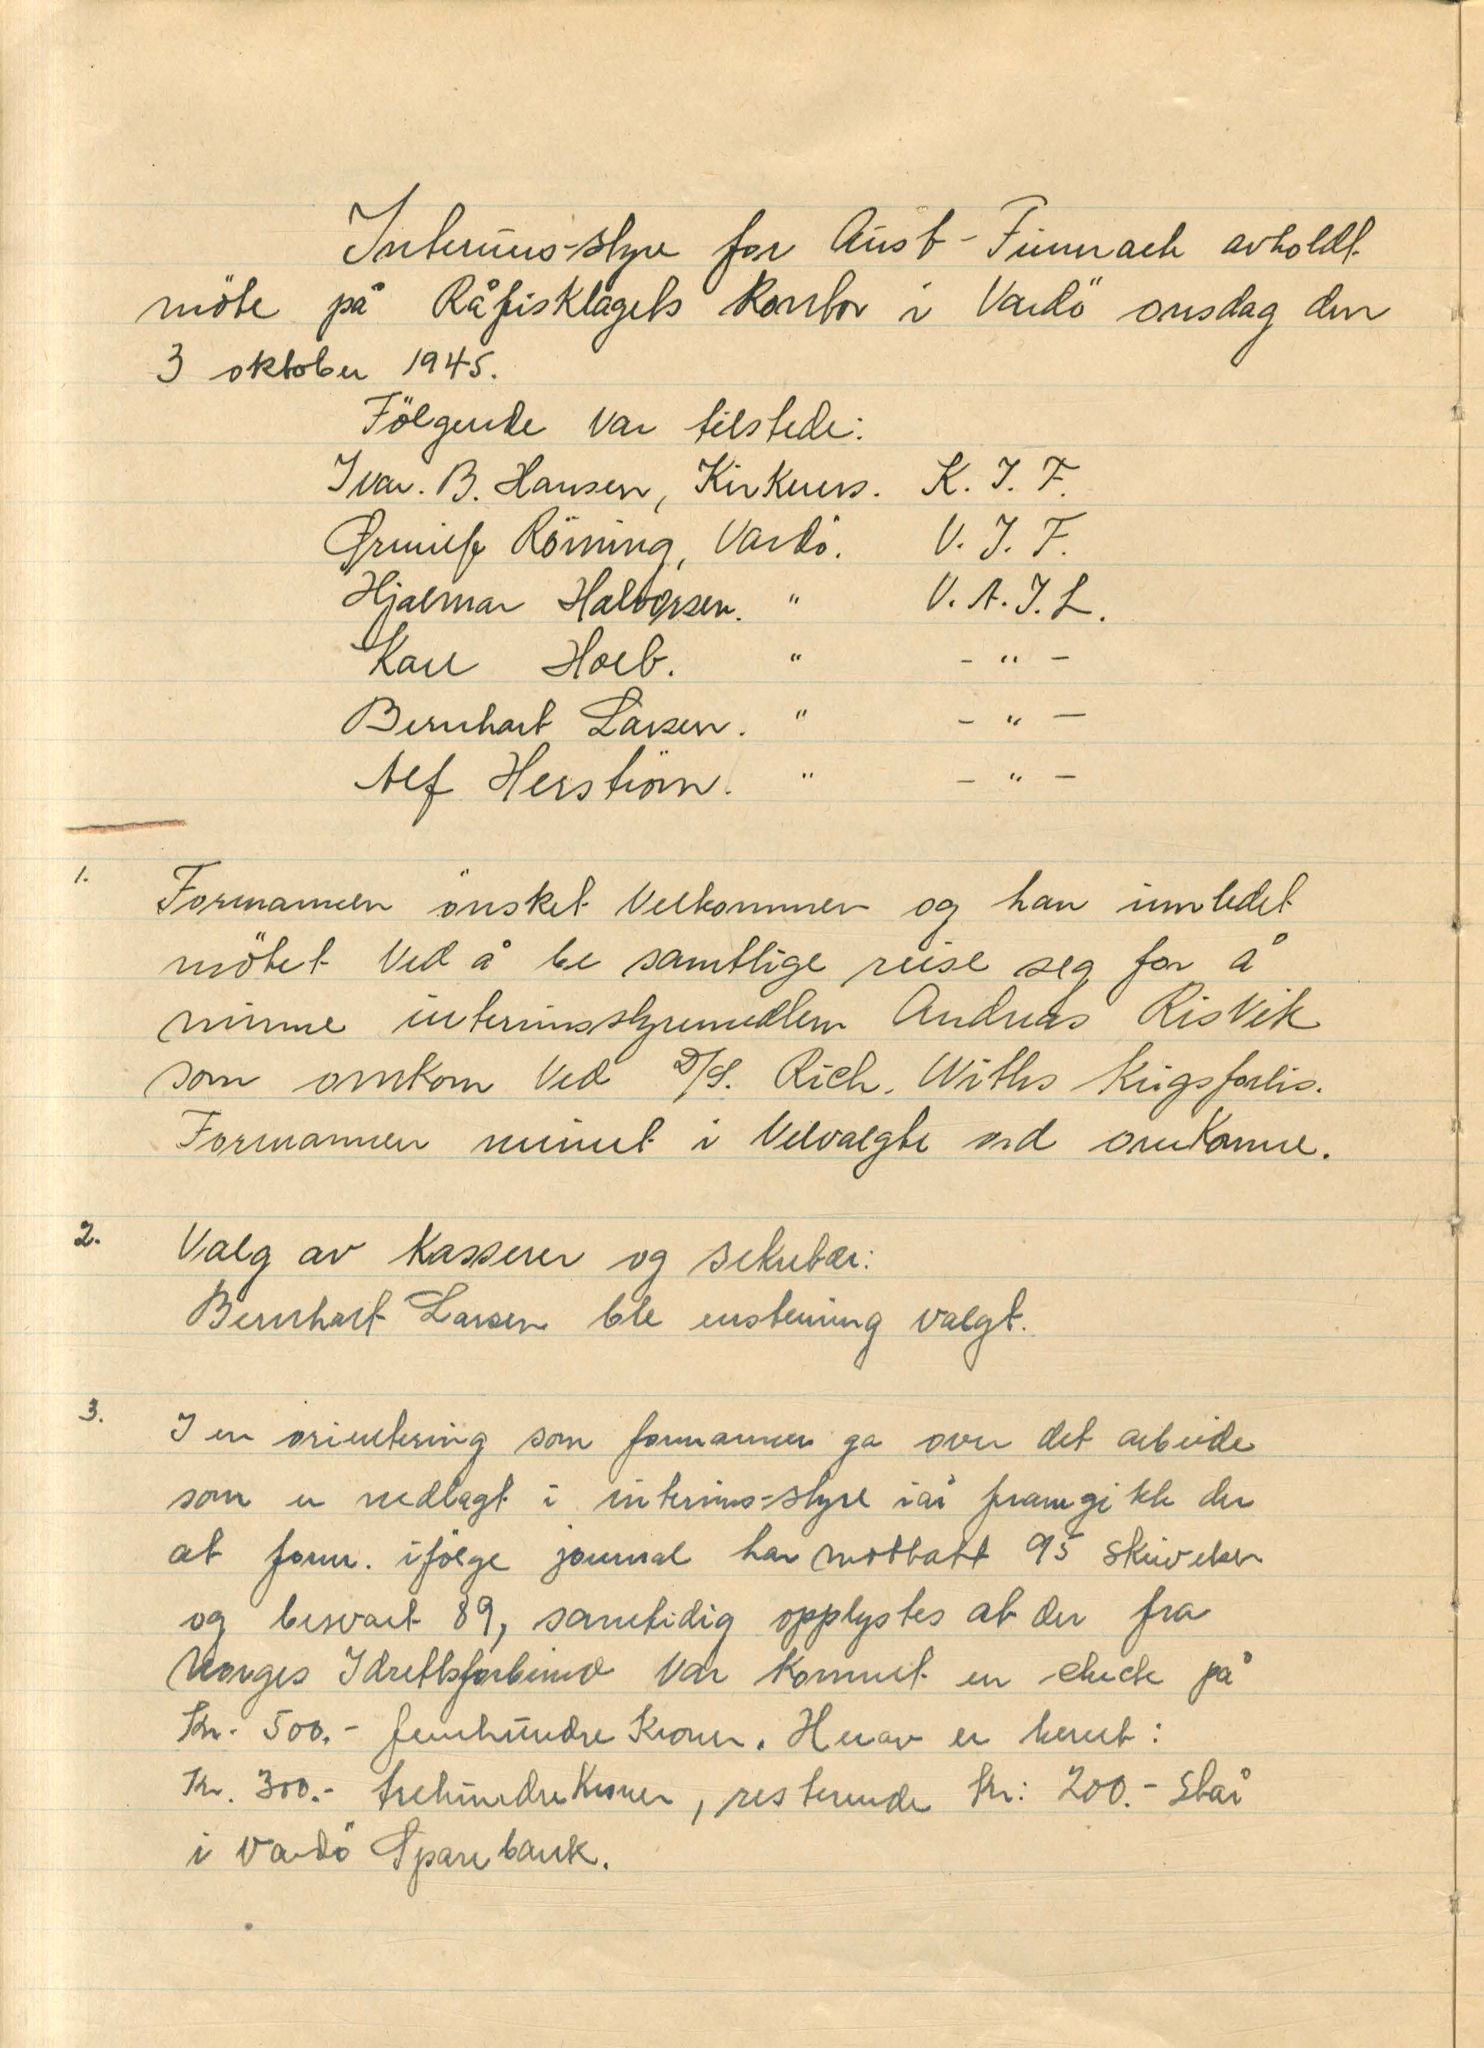 Interims-styre for Aust-Finnmark avholdt
möte på Råfisklagets Kontor i Vardö onsdag den
3 oktober 1945.
Fölgende var tilstede:
Ivar. B. Hansen, Kirkenes. K. I. F.
Röining, Vardö. V. I. F.
Hjalmar Halvorsen. " V. A. I. L.
Karl Holt. " - " -
Bernhart Larsen. " - " -
Alf Herström. " - " -
1. Formannen önsket Velkommen og han innledet
mötet Ved å be samtlige reise seg for å
minne interimsstyremedlem Andreas Risvik
som omkom Ved D/S. Rich. Withs Krigsforlis.
Formannen minnet i Velvalgte ord omkomne.
2. Valg av Kasserer og sekretær:
Bernhart Larsen ble enstemmig valgt.
3. I en orientering som formannen ga over det arbeide
som er nedlagt i interims-styre iår framgikk der
at form. ifölge journal har mottatt 95 skrivelser
og besvart 89, sametidig opplystes at der fra
Norges Idrettsforbund Var Kommet en check på
Kr. 500.- femhundre Kroner. Herav er
Kr. 300.- trehundre Kroner, resterende Kr: 200.- står
i Vardö Sparebank.